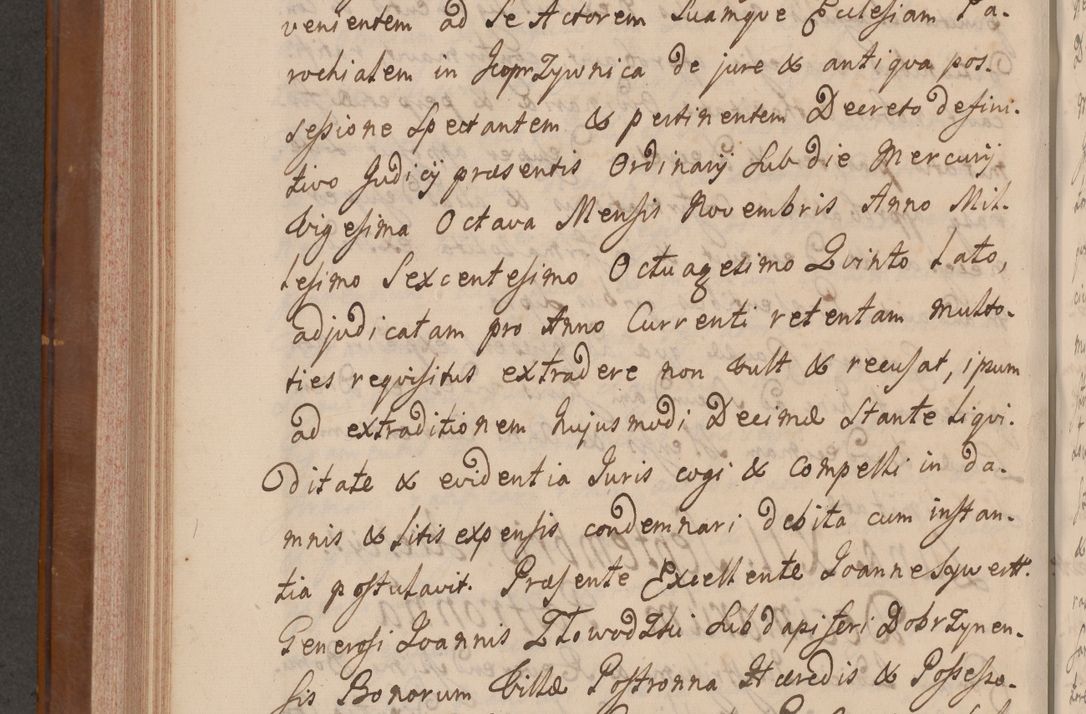 venientem ad Se Actorem Suamqve Ecclesiam Pa-
rochialem in KoprZywnica de jure & antiqva pos-
sessione Spectantem & pertinentem Decreto defini-
tivo Judicij præsentis Ordinarij Sub die Mercurij
Vigesima Octava Mensis Novembris Anno Mil-
lesimo Sexcentesimo Octuagesimo Qvinto Lato,
adjudicatam pro Anno Currenti retentam multo-
ties reqvisitus extradere non vult & recusat, ipsum
ad extraditionem hujusmodi Decimæ Stante Liqvi-
ditate & evidentia Juris cogi & compelli in da-
mnis & litis expensis condemnari debita cum instan-
tia postulavit. Præsente Excellente Joanne
Generosi Joannis Sub dapiferi DobrZynen-
sis Bonorum Villæ Postronna Hæredis & Possesso-